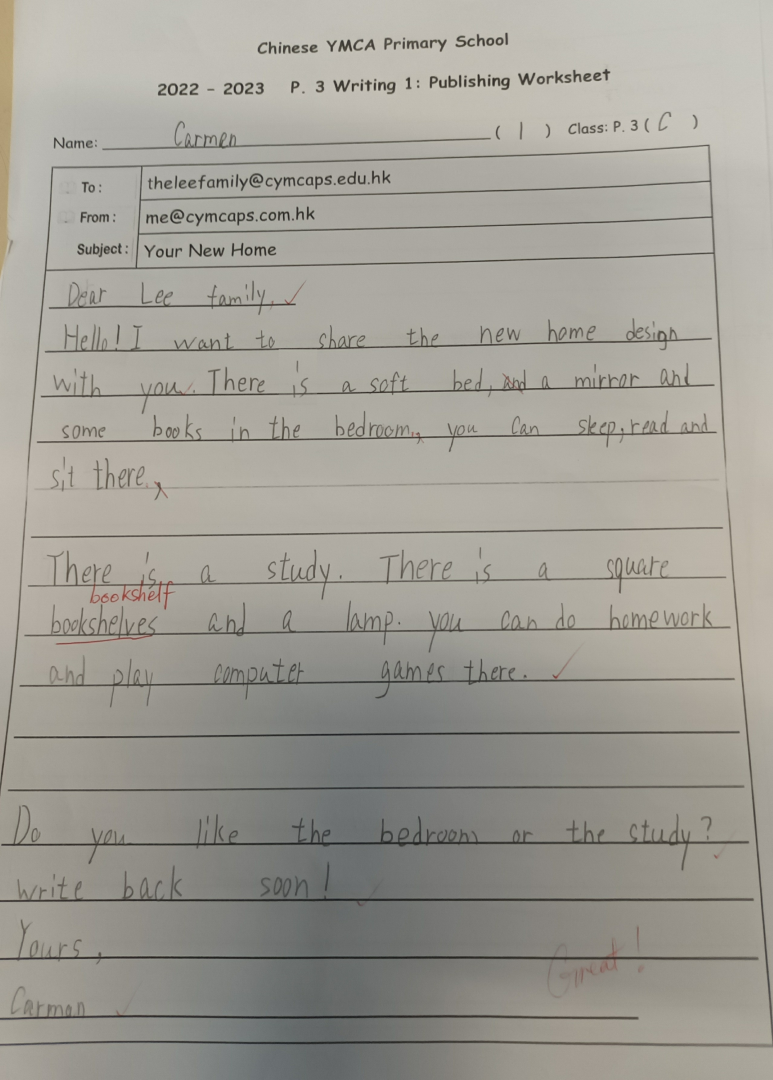 Chinese YMCA Primary School
2022 - 2023 P. 3 Writing 1: Publishing Worksheet
Name: Carmen ( 1 ) Class: P. 3 ( C )
To: theleefamily@cymcaps.edu.hk
From: me@cymcaps.com.hk
Subject: Your New Home
Dear Lee family,
Hello! I want to share the new home design
with you. There is a soft bed, and a mirror and
some books in the bedroom, you can sleep, read and
sit there.
There is a study. There is a square
bookshelf
bookshelves and a lamp. you can do homework
and play computer games there.
Do you like the bedroom or the study?
write back soon!
Yours,
Great!
Carman